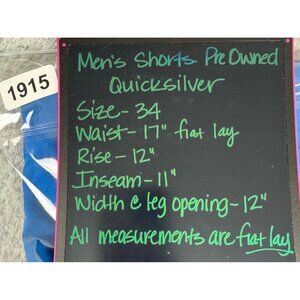 1915
Men's Shorts Pre Owned
Quicksilver
Size- 34
Waist- 17" flat lay
Rise- 12"
Inseam- 11"
Width @ leg opening- 12"
All measurements are flat lay